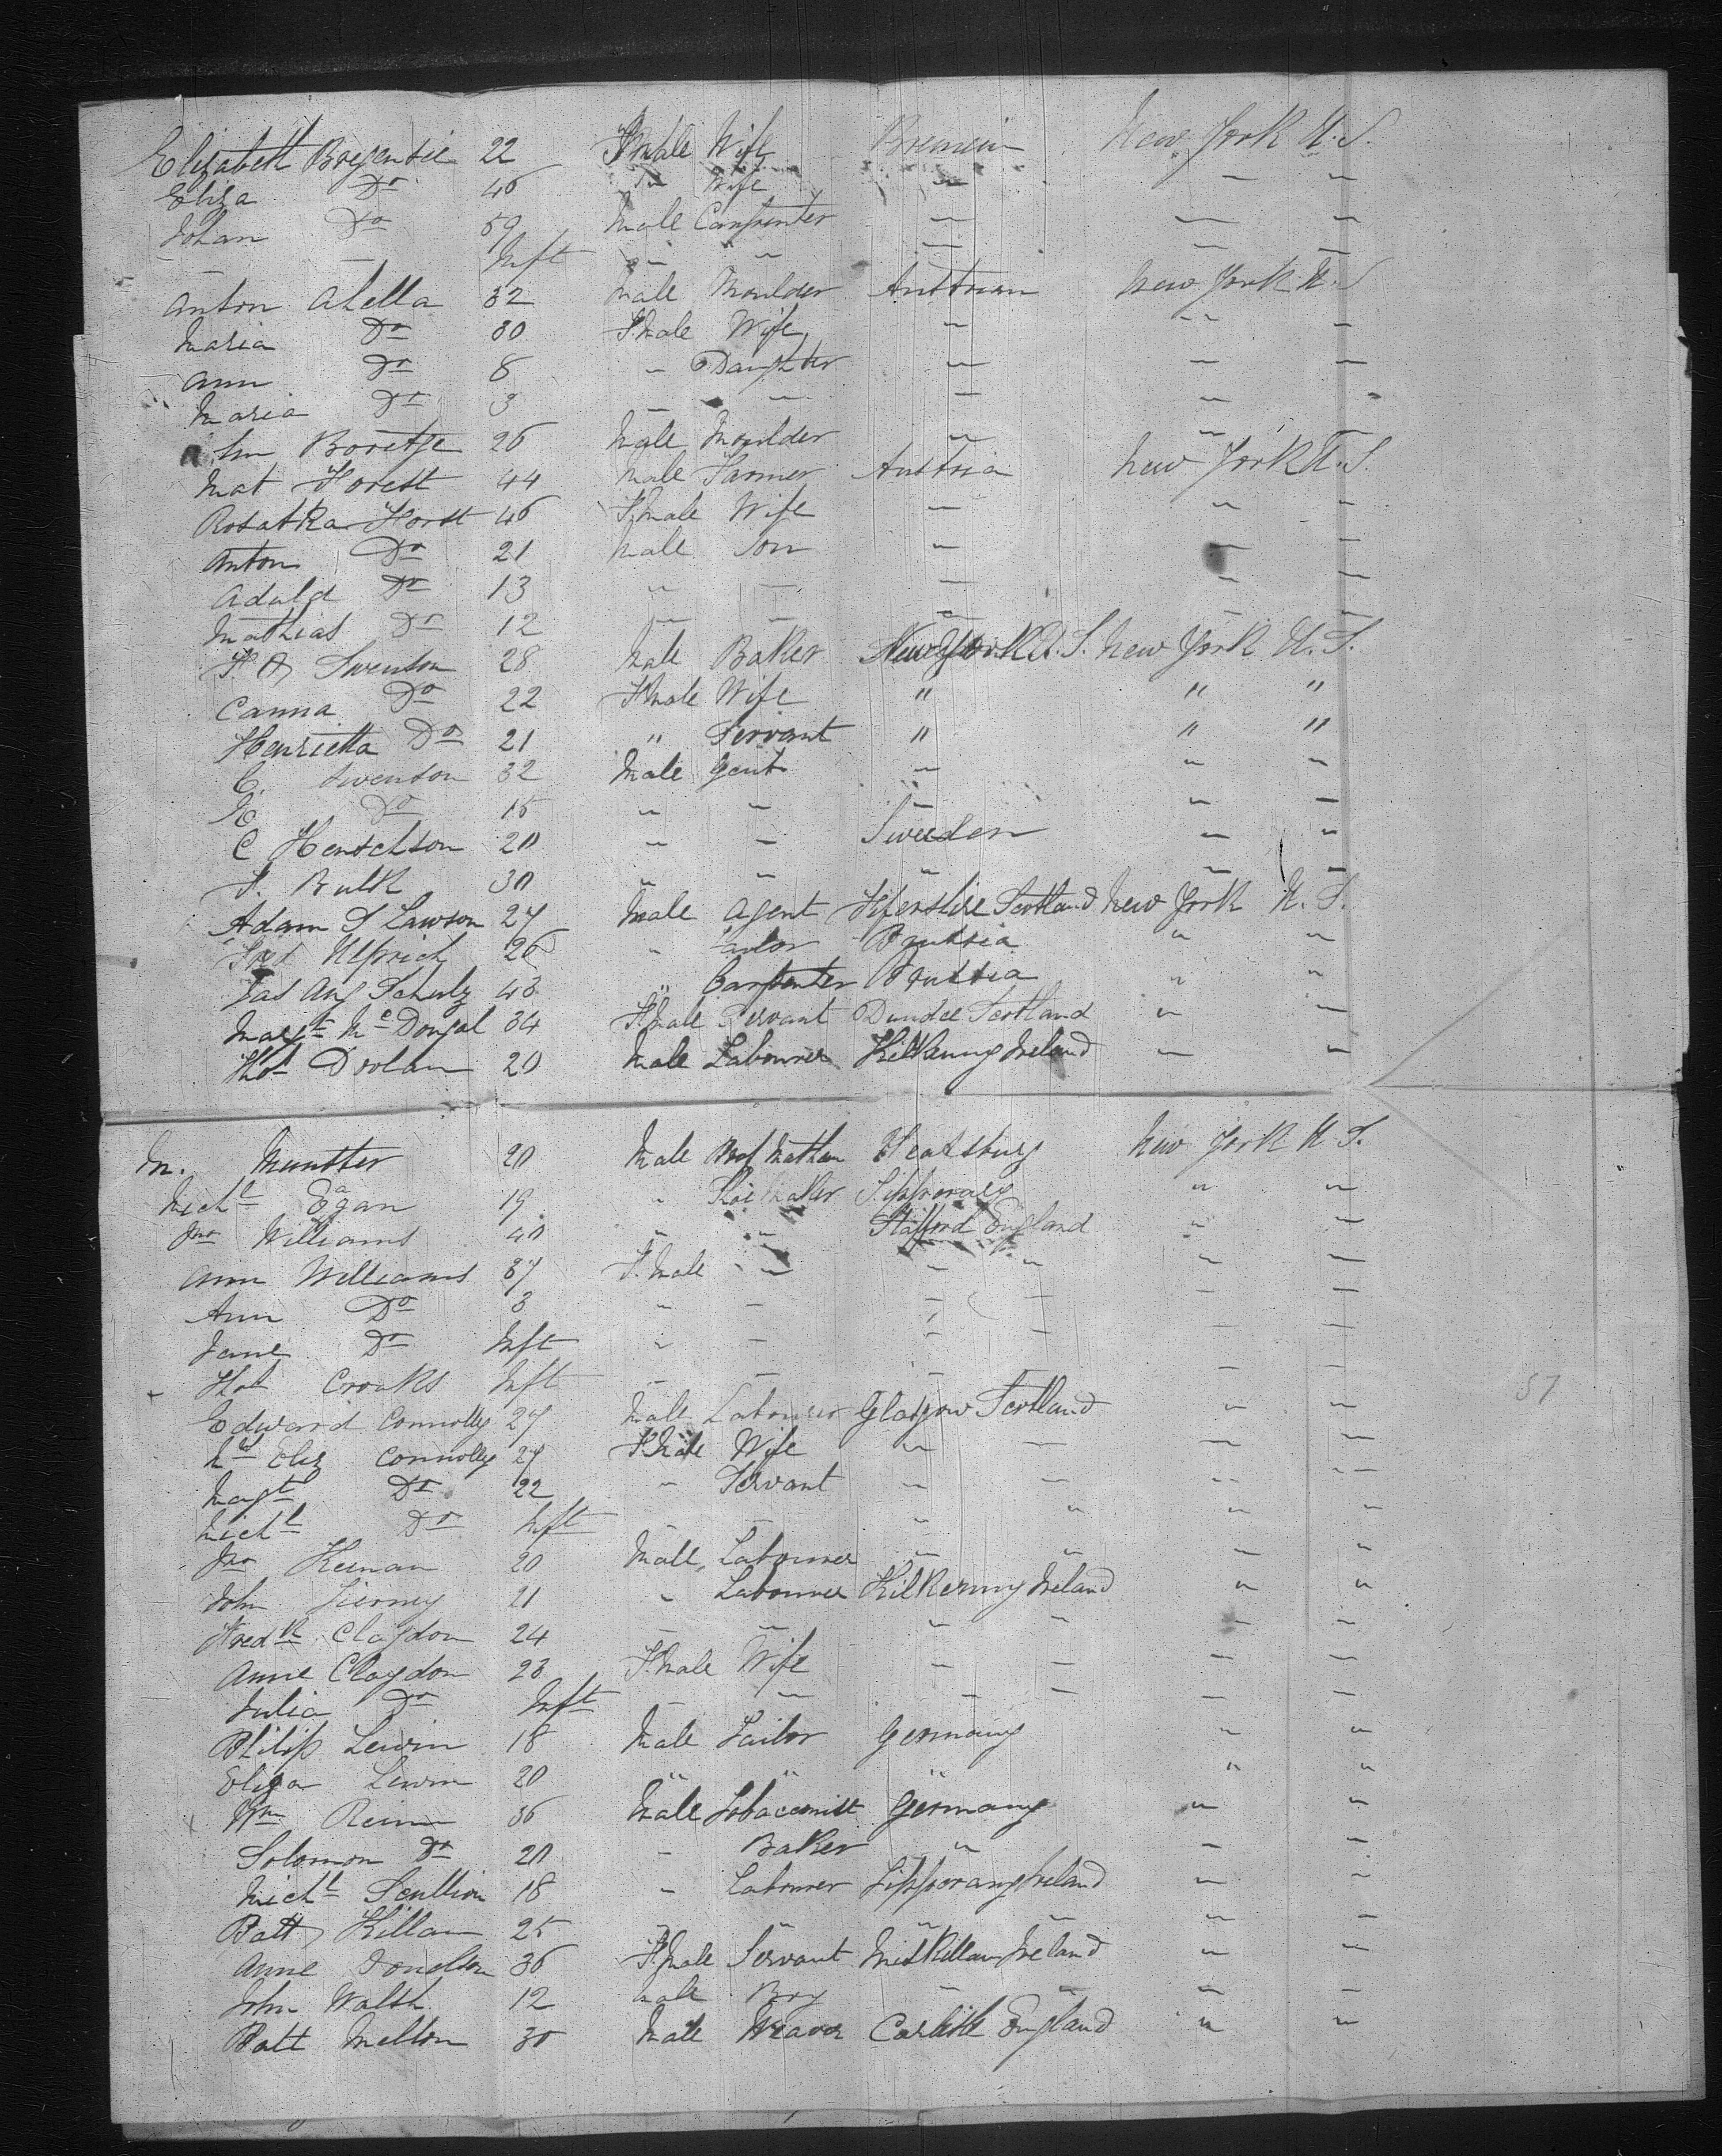 Elizabeth Bregentie 22 F.Male Wife Bremein New York U.S.
Eliza Do 46 " Wife " " "
Johan Do 59 Male Carpenter " " "
— — Inft " " " " "
Anton Alella 32 Male Moulder Austrian New York U.S
Maria Do 30 F.Male Wife " " "
Ann Do 8 " Daughter " " "
Maria Do 3 " " " " "
Boretje 26 Male Moulder " " "
Mat Horest 44 Male Farmer Austria New York U.S.
Rosatka Horst 46 F.Male Wife " " "
Anton Do 21 Male Son " " "
Adulf Do 13 " " " " "
Mathias Do 12 " " " " "
F. A Swenson 28 Male Baker New York U.S. New York U.S.
Canna Do 22 F.Male Wife " " "
Henrietta Do 21 " Servant " " "
C. Swenson 32 Male Gent " " "
E Do 15 " " " " "
C Henschson 20 " " Sweeden " "
F. Bulk 30 " " " " "
Adam S Lawson 27 Male Agent Fifershire Scotland New York U.S.
Fred Ulprich 26 " Tailor Prussia " "
Jas Aug Schulz 43 " Carpenter Prussia " "
Margt McDougal 34 F.Male Servant Dundee Scotland " "
Thos Doolan 20 Male Labourer Kilkenny Ireland " "
M. Munster 20 Male Prof Mathan New York U S.
Michl Egan 19 " Shoe Maker Tipperary " "
Jno Williams 40 " " Stafford England " "
Ann Williams 37 F.Male " " " " "
Ann Do 3 " " " " " "
Jane Do Inft " " " " " "
Thos Crooks Inft " " " " "
Edward Connolly 27 Male Labourer Glasgow Scotland " "
Mrs Eliz Connolly 27 F.Male Wife " " " "
Magt Do 22 " Servant " " " "
Michl Do Inft " " " " " "
Jno Keenan 20 Male Labourer " " " "
John Tierney 21 " Labourer Kilkenny Ireland " "
Fredk Claydon 24 " " " " " "
Annie Claydon 23 F.Male Wife " " " "
Julia Do Inft " " " " " "
Philip Lewin 18 Male Tailor Germany " "
Eliza Lewin 20 " " " " "
Wm Rein 36 Male Tobaconist Germany " "
Solomon Do 20 " Baker " " "
Michl Scullion 18 " Labourer Tipperary Ireland " "
Patt Killan 25 " " " " " "
Anne Donelson 36 F.Male Servant Ireland " "
John Walsh 12 Male Boy " " " "
Patt Mellon 30 Male Weaver Carlisle England " "
57